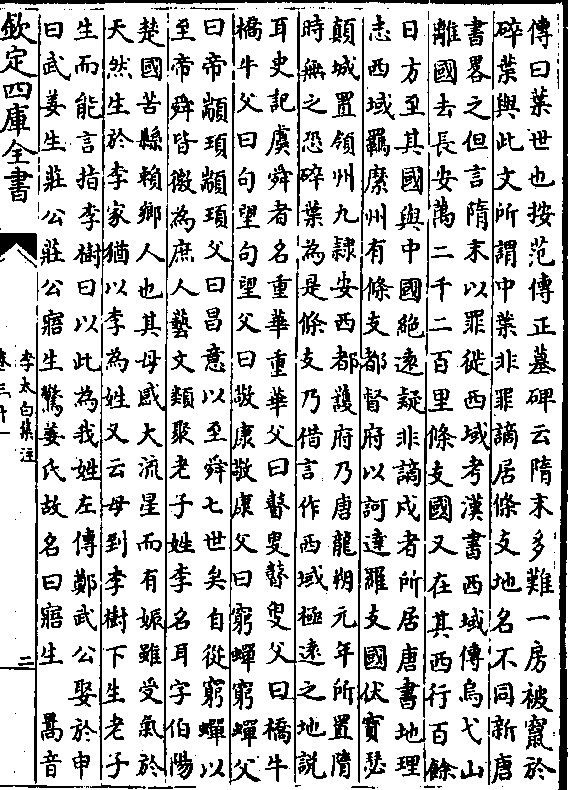 傳曰葉世也按范傳正墓碑云隋末多難一房被竄於
碎葉與此文所謂中葉非罪謫居條支地名不同新唐
書畧之但言隋末以罪徙西域考漢書西域傳烏弋山
離國去長安萬二千二百里條支國又在其西行百餘
日方至其國與中國絶逺疑非謫戍者所居唐書地理
志西域羈縻州有條支都督府以訶達羅支國伏寳瑟
顛城置領州九隸安西都護府乃唐龍朔元年所置隋
時無之恐碎葉為是條支乃借言作西域極逺之地説
耳史記虞舜者名重華重華父曰瞽叟瞽叟父曰橋牛
橋牛父曰句望句望父曰敬康敬康父曰窮蟬窮蟬父
曰帝顓頊顓頊父曰昌意以至舜七世矣自從窮蟬以
至帝舜皆微為庶人藝文類聚老子姓李名耳字伯陽
楚國苦縣賴鄉人也其母感大流星而有娠雖受氣於
天然生於李家猶以李為姓又云母到李樹下生老子
生而能言指李樹曰以此為我姓左傳鄭武公娶於申
曰武姜生莊公莊公寤生驚姜氏故名曰寤生 暠音
欽定四庫全書
李太白集注
卷三十
二